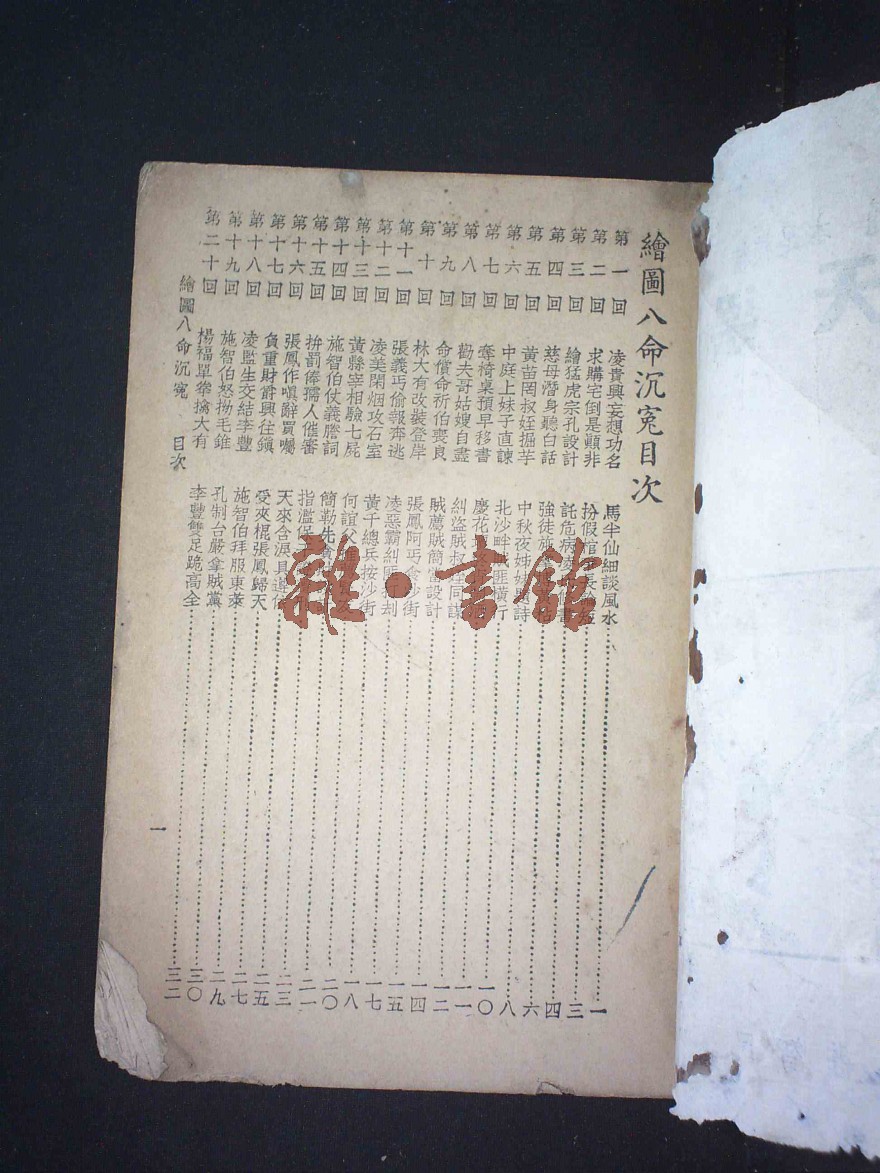 繪圖八命沉冤目次
第一回 凌貴興妄想功名 馬半仙細談風水 一
第二回 求購宅倒是顛非 扮假官 三
第三回 繪猛虎宗孔設計 託危病 四
第四回 慈母潛身聽白話 強徒施 六
第五回 黃苗罔叔姪掘芋 中秋夜姊妹 詩 八
第六回 中庭上妹子直諫 北沙畔 匪橫行 一〇
第七回 奪椅桌預早移書 慶花 一一
第八回 勸夫哥姑嫂自盡 糾盜賊叔姪同謀 一二
第九回 命償命祈伯喪良 賊薦賊簡當設計 一四
第十回 林大有改裝登岸 張鳳阿丐 沙街 一五
第十一回 張義丐偷報奔逃 凌惡霸糾匪行刦 一七
第十二回 凌美閑烟攻石室 黃千總兵按沙街 一八
第十三回 黃縣宰相驗七屍 何誼父 二〇
第十四回 施智伯仗義謄詞 簡勒先 二一
第十五回 拚罰俸孺人催審 指濫保 二三
第十六回 張鳳作嗔辭買囑 天來含淚具 二五
第十七回 負重財爵興往鎮 受夾棍張鳳歸天 二七
第十八回 凌監生交結李豐 施智伯拜服東萊 二九
第十九回 施智伯怒揚毛錐 孔制台嚴拿賊黨 三〇
第二十回 楊福單拳擒大有 李豐雙足跪高全 三二
繪圖八命沉冤 目次 一
雜·書館